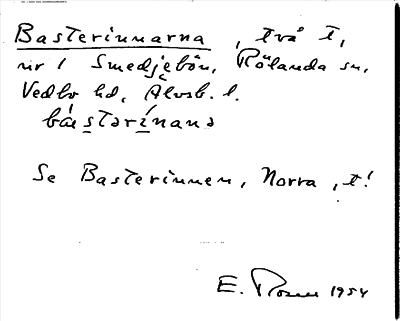 Basterinnarna, två t,
nr 1 Smedjebön, Rölanda sn,
Vedbo hd, Älvsb. l.
båstərinanə
Se Basterinnen, Norra, t!
E. Rosell 1954